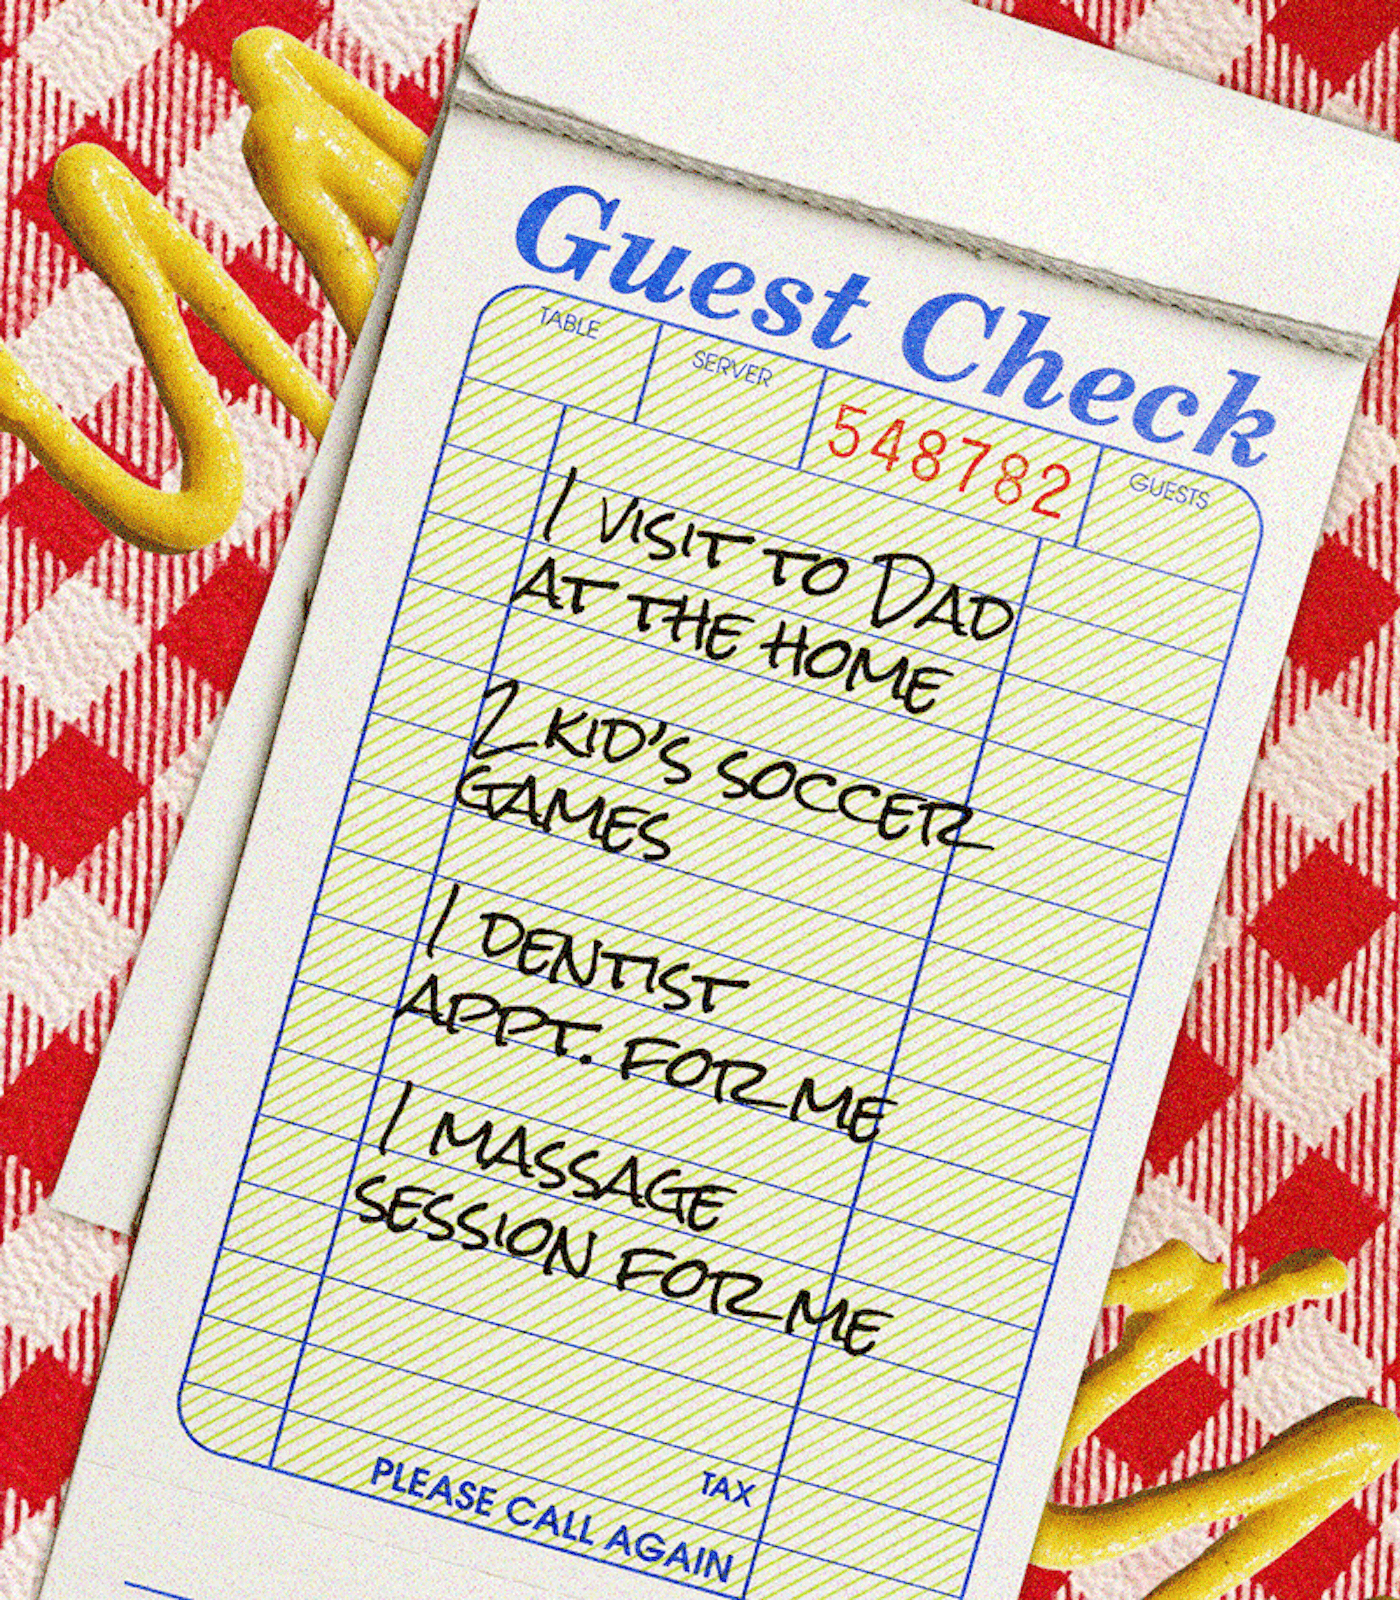 Guest Check
TABLE SERVER 548782 GUESTS
1 VISIT TO DAD
AT THE HOME
2 KID'S SOCCER
GAMES
1 DENTIST
APPT. FOR ME
1 MASSAGE
SESSION FOR ME
TAX
PLEASE CALL AGAIN